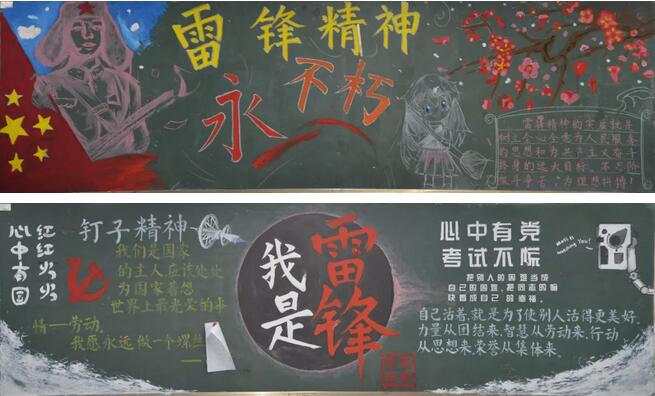 雷锋精神
永不朽
雷锋精神的实质就是
树立人心全意为人民服务
的思想和为共产主义奋斗
终身的远大目标，不忘阶
级斗争苦，为理想拼搏！
红红火火
心中有国
钉子精神
我们是国家
的主人应该处处
为国家着想
世界上最光荣的事
情—劳动。
我愿永远做一个螺丝
我是
雷锋
心中有党
考试不慌
把别人的困难当成
自己的困难，把同志的愉
快看成自己的幸福。
自己活着，就是为了使别人活得更美好。
力量从团结来，智慧从劳动来，行动
从思想来，荣誉从集体来。